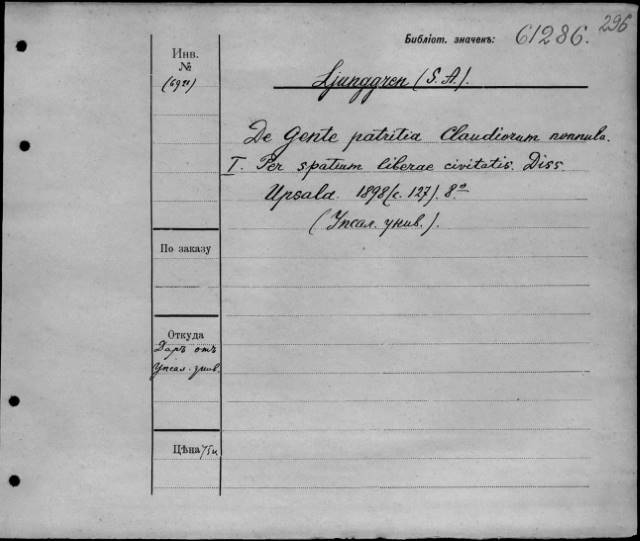 296
Библіот. значенъ: 61286.
Инв.
№
Ljunggren (S. A.).
De Gente patritia Claudiorum nonnula.
I. Per spatium liberae civitatis. Diss.
Upsala. 1898 (с. 127). 8º
(Упсал. унив.).
По заказу
Откуда
Даръ отъ
Упсал. унив.
Цѣна 75 к